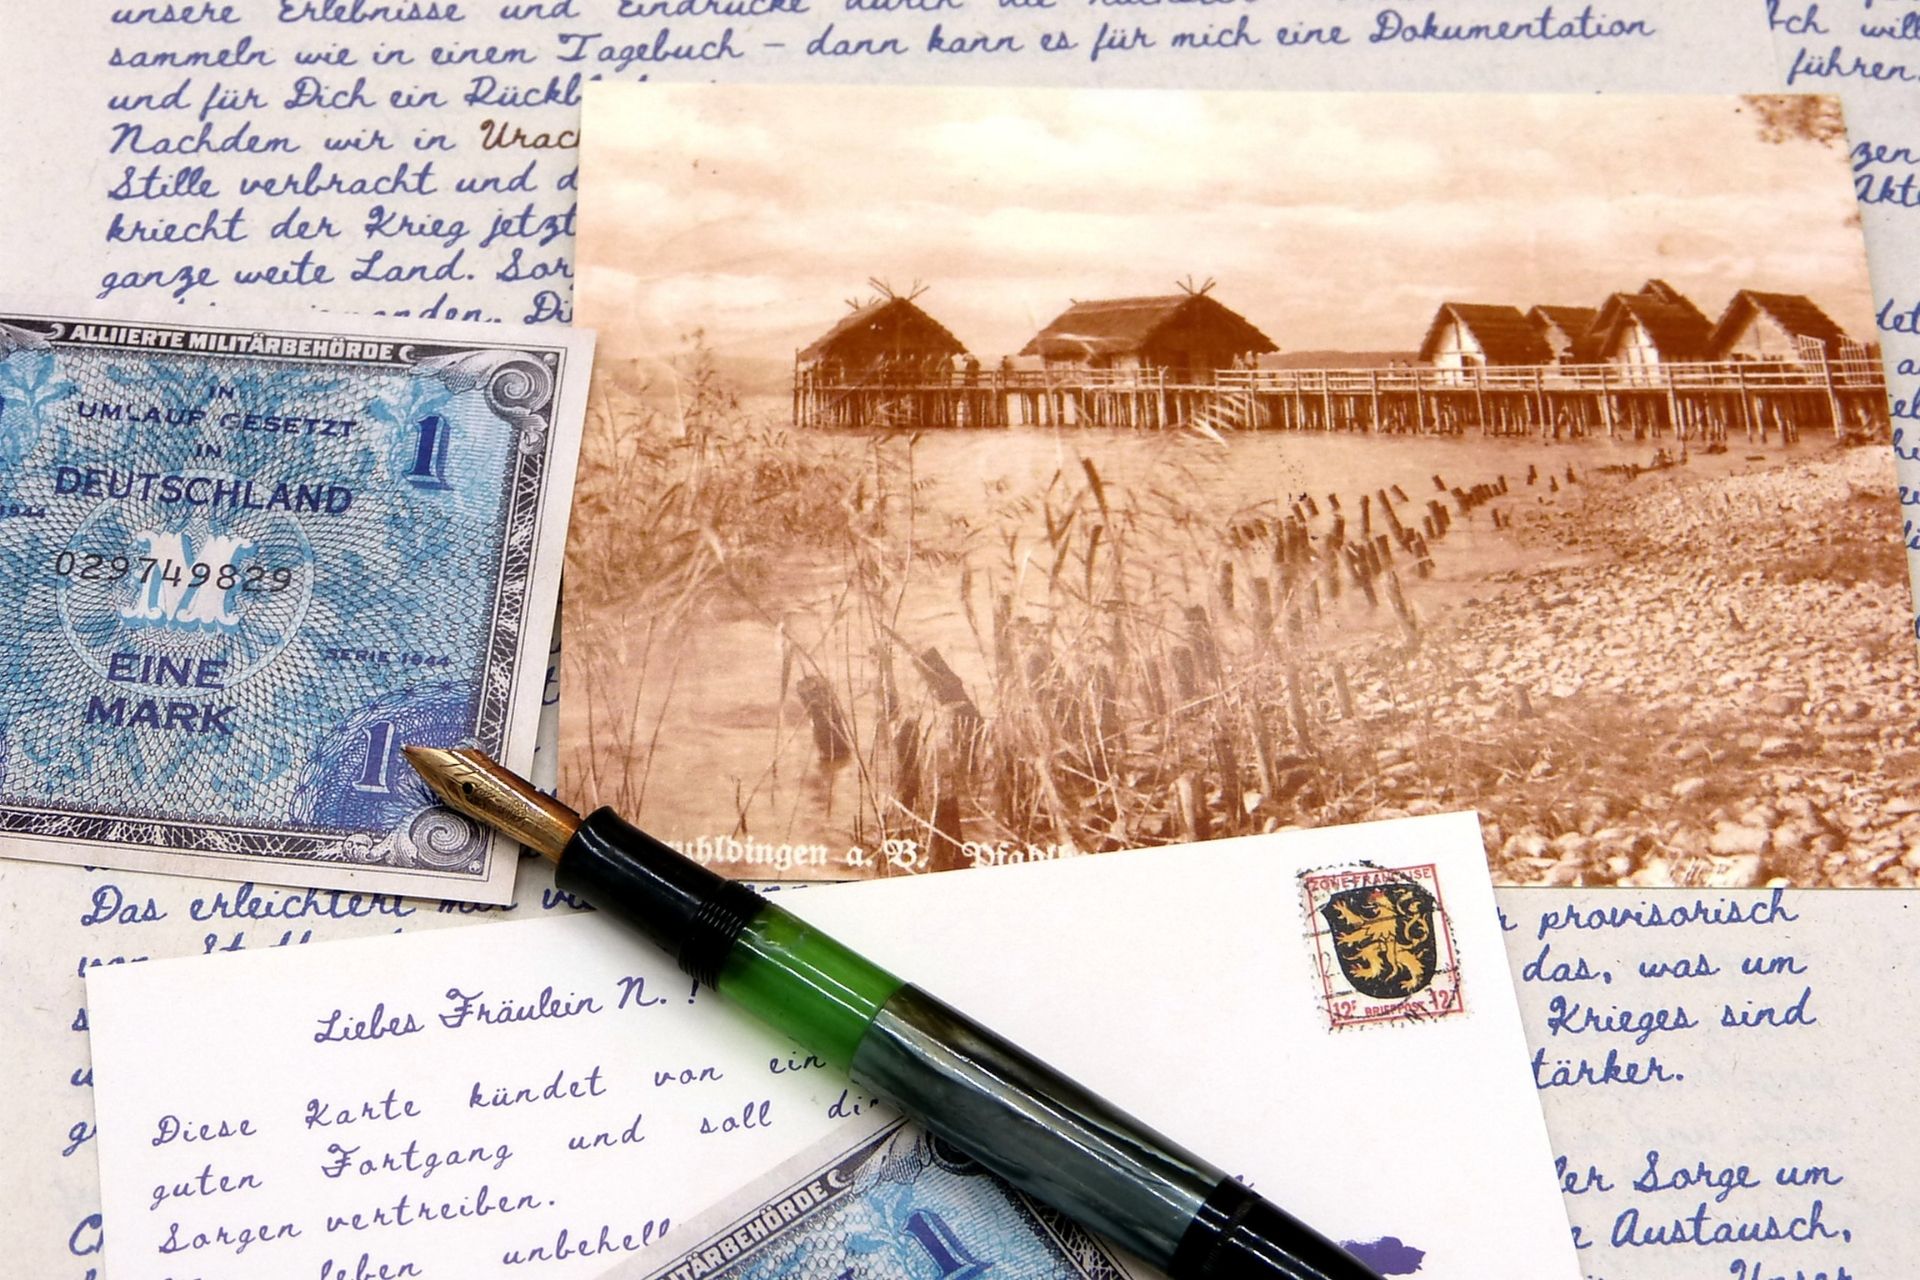 unsere Erlebnisse und Eindrücke durch die
sammeln wie in einem Tagebuch – dann kann es für mich eine Dokumentation
und für Dich ein Rückbl
Nachdem wir in Urach
Stille verbracht und d
kriecht der Krieg jetzt
ganze weite Land. Sor
anden. Di
Ich will
führen.
zen
Akt
ALLIIERTE MILITÄRBEHÖRDE
IN
UMLAUF GESETZT
IN
DEUTSCHLAND
1
1944
029749829
M
EINE
MARK
SERIE 1944
1
uhldingen a. B. Pfahlb
Das erleichtert mir
provisorisch
das, was um
Krieges sind
tärker.
er Sorge um
Austausch,
Unser
Liebes Fräulein N. !
Diese Karte kündet von ein
guten Fortgang und soll di
Sorgen vertreiben.
leben unbehell
ZONE FRANÇAISE
12F BRIEFPOST 12F
TÄRBEHÖRDE
1